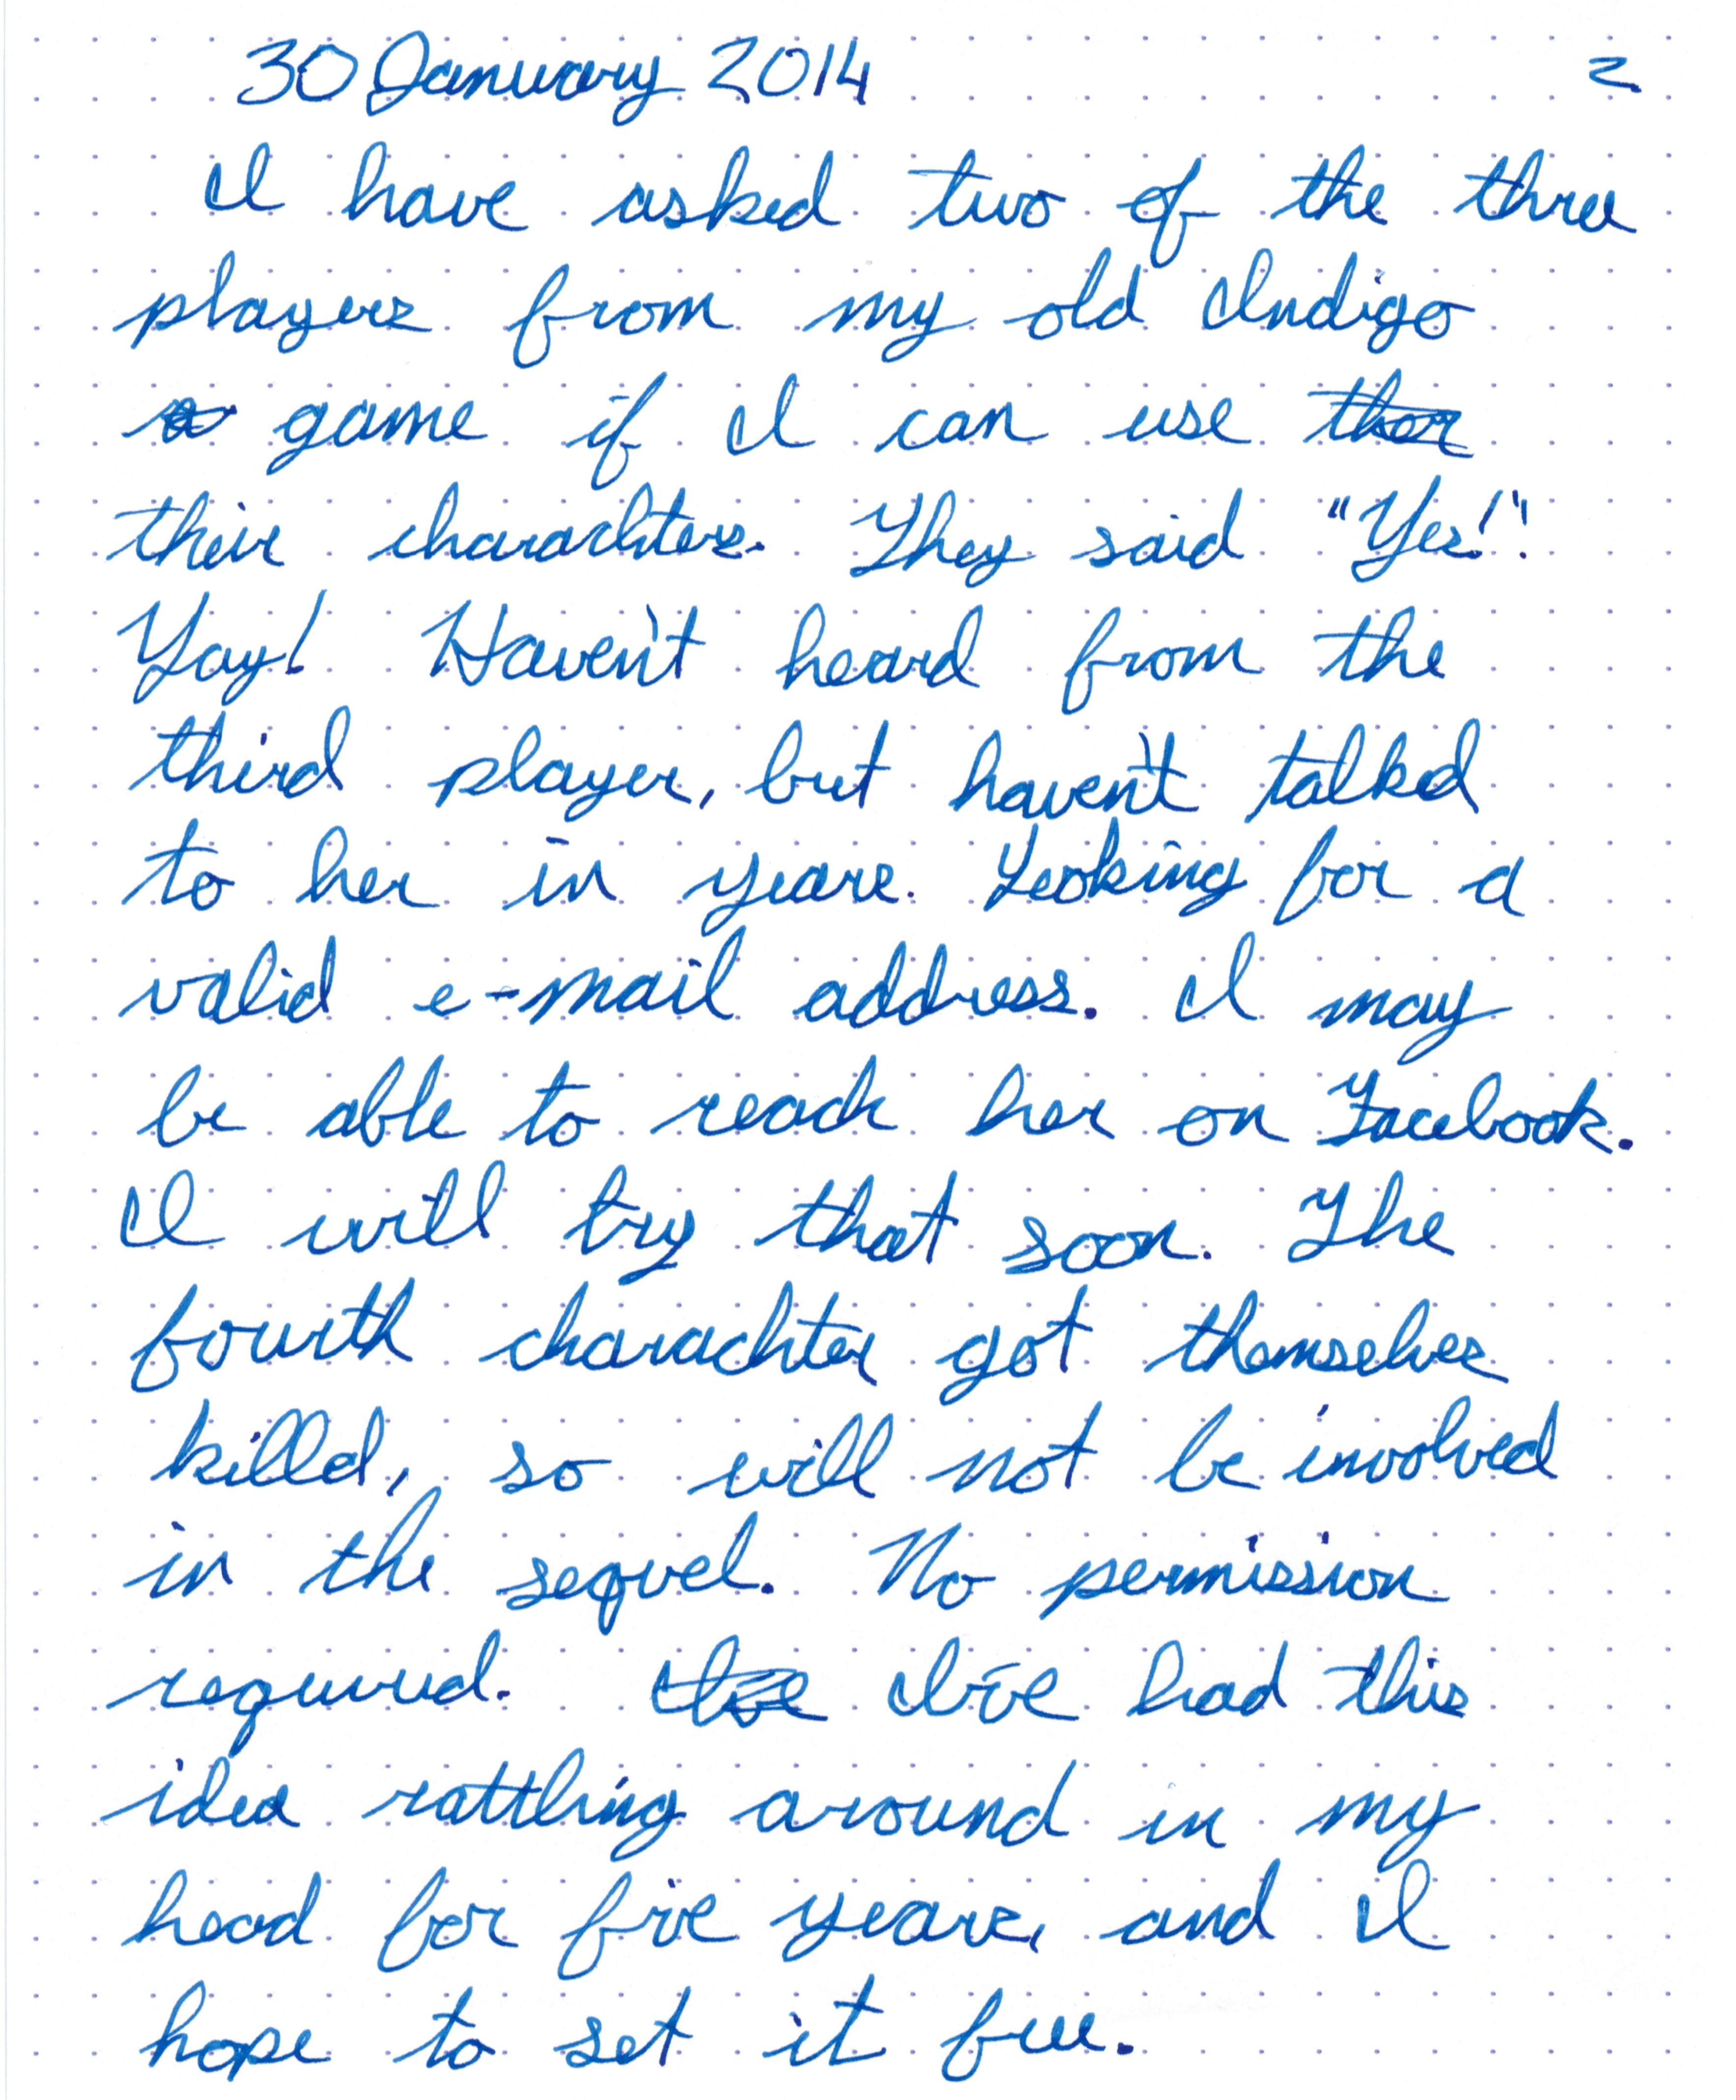 30 January 2014 2
I have asked two of the three
players from my old Indigo
game if I can use
their charachters. They said "Yes!"
Yay! Haven't heard from the
third player, but haven't talked
to her in years. Looking for a
valid e-mail address. I may
be able to reach her on Facebook.
I will try that soon. The
fourth charachter got themselves
killed, so will not be involved
in the sequel. No permission
required. I've had this
idea rattling around in my
head for five years, and I
hope to set it free.